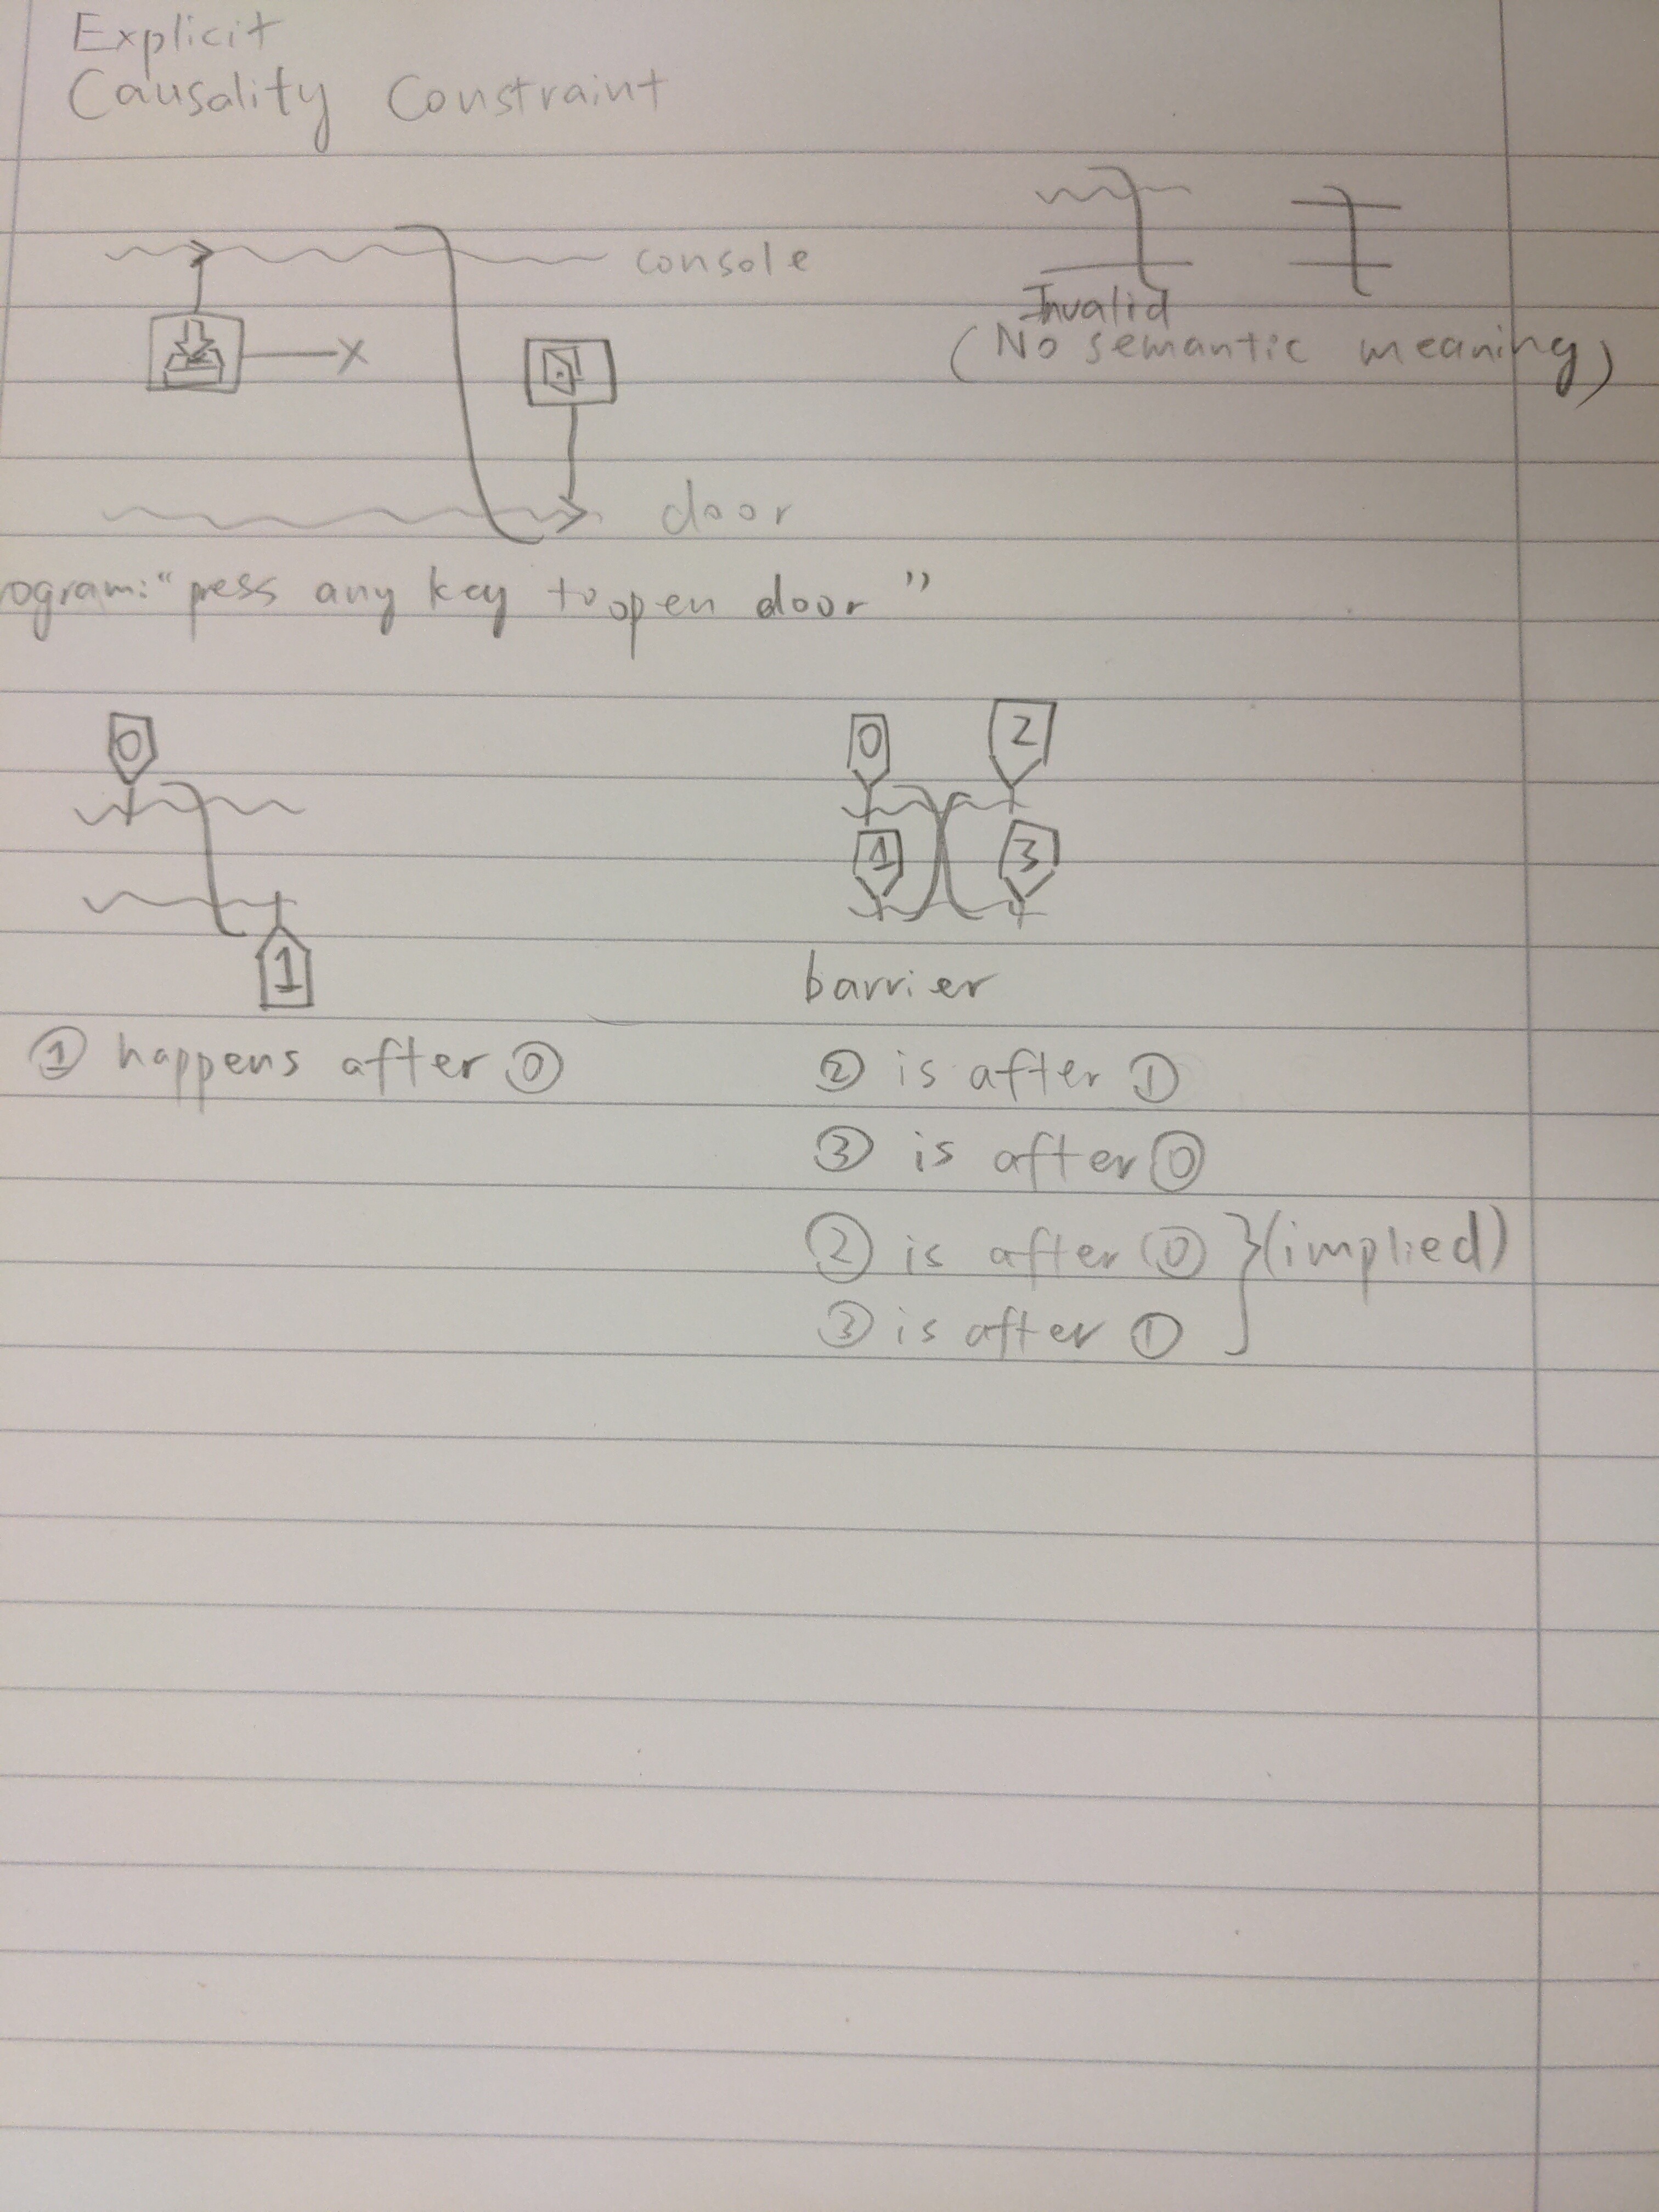 Explicit
Causality Constraint
console
Invalid
(No semantic meaning)
door
rogram: "press any key to open door"
0
1
0
2
1
3
barrier
① happens after ⓪
② is after ①
③ is after ⓪
② is after ⓪ }(implied)
③ is after ①